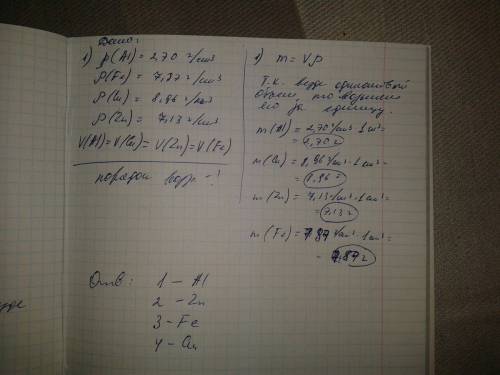 Дано:
1) ρ(Al) = 2,70 г/см³
ρ(Fe) = 7,87 г/см³
ρ(Cu) = 8,96 г/см³
ρ(Zn) = 7,13 г/см³
V(Al) = V(Cu) = V(Zn) = V(Fe)
порядок
1) m = Vρ
Т.к. везде одинаковый
объем, то возьмем
его за единицу.
m(Al) = 2,70 г/см³ · 1 см³ =
= 2,70 г
m(Cu) = 8,96 г/см³ · 1 см³ =
= 8,96 г
m(Zn) = 7,13 г/см³ · 1 см³ =
= 7,13 г
m(Fe) = 7,87 г/см³ · 1 см³ =
= 7,87 г
Отв: 1 – Al
2 – Zn
3 – Fe
4 – Cu